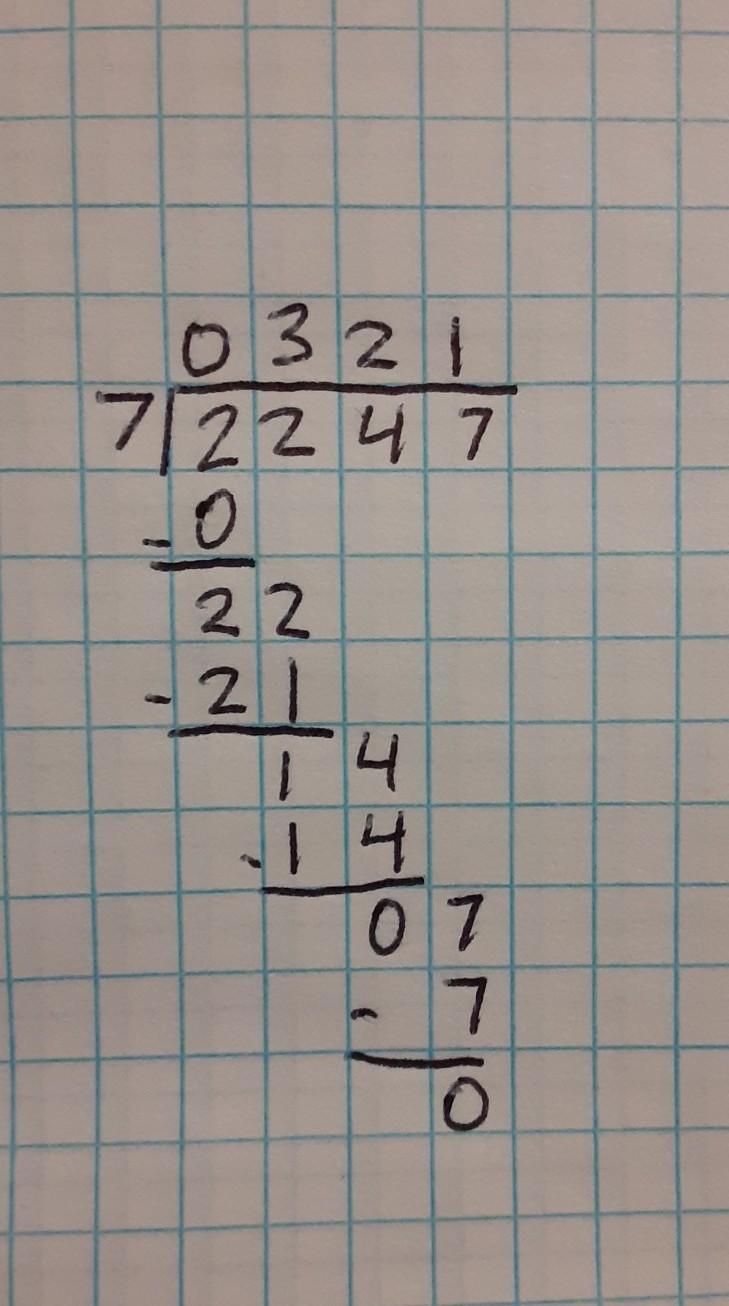 0321
7 2247
-0
22
-21
14
-14
07
- 7
0